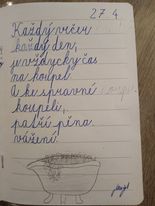 27. 4.
Každý večer
každý den,
je vždycky čas
na koupel.
A ke správní
koupeli,
patří pěna
vážení.